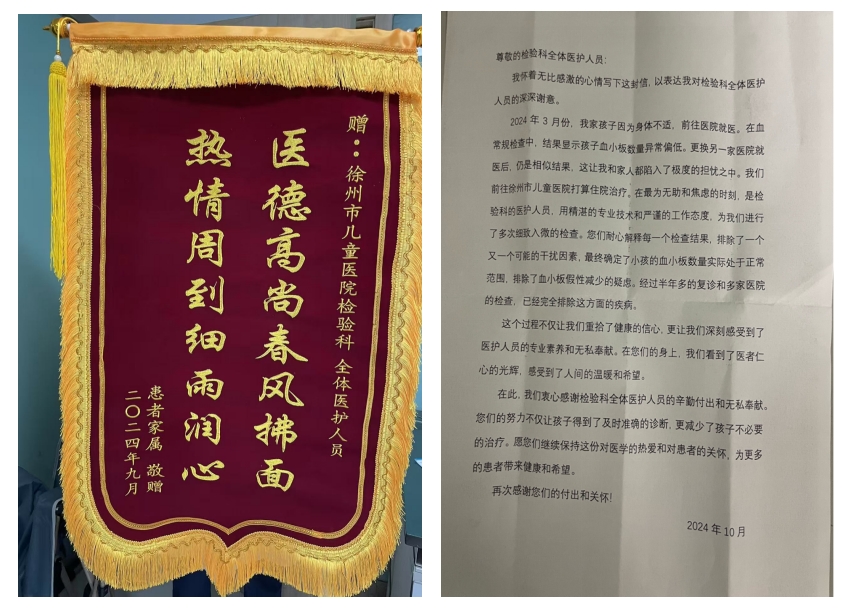 赠：徐州市儿童医院检验科 全体医护人员
医德高尚春风拂面
热情周到细雨润心
患者家属 敬赠
二〇二四年九月
尊敬的检验科全体医护人员：
我怀着无比感激的心情写下这封信，以表达我对检验科全体医护
人员的深深谢意。
2024 年 3 月份，我家孩子因为身体不适，前往医院就医。在血
常规检查中，结果显示孩子血小板数量异常偏低。更换另一家医院就
医后，仍是相似结果，这让我和家人都陷入了极度的担忧之中。我们
前往徐州市儿童医院打算住院治疗。在最为无助和焦虑的时刻，是检
验科的医护人员，用精湛的专业技术和严谨的工作态度，为我们进行
了多次细致入微的检查。您们耐心解释每一个检查结果，排除了一个
又一个可能的干扰因素，最终确定了小孩的血小板数量实际处于正常
范围，排除了血小板假性减少的疑虑。经过半年多的复诊和多家医院
的检查，已经完全排除这方面的疾病。
这个过程不仅让我们重拾了健康的信心，更让我们深刻感受到了
医护人员的专业素养和无私奉献。在您们的身上，我们看到了医者仁
心的光辉，感受到了人间的温暖和希望。
在此，我们衷心感谢检验科全体医护人员的辛勤付出和无私奉献。
您们的努力不仅让孩子得到了及时准确的诊断，更减少了孩子不必要
的治疗。愿您们继续保持这份对医学的热爱和对患者的关怀，为更多
的患者带来健康和希望。
再次感谢您们的付出和关怀！
2024 年 10 月